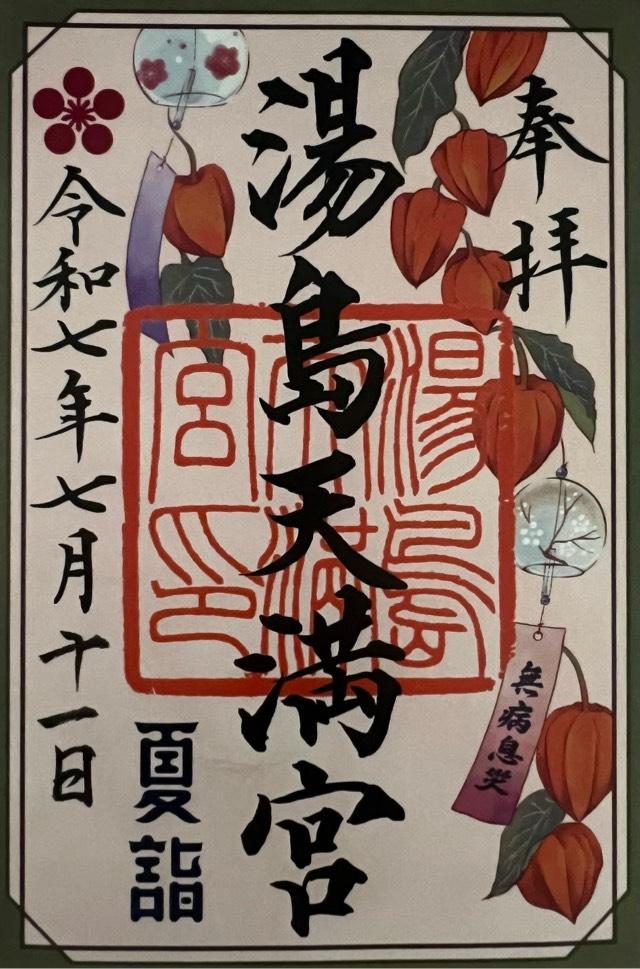 奉拝
湯島天満宮
湯島
天満
宮印
無病息災
夏詣
令和七年七月十一日